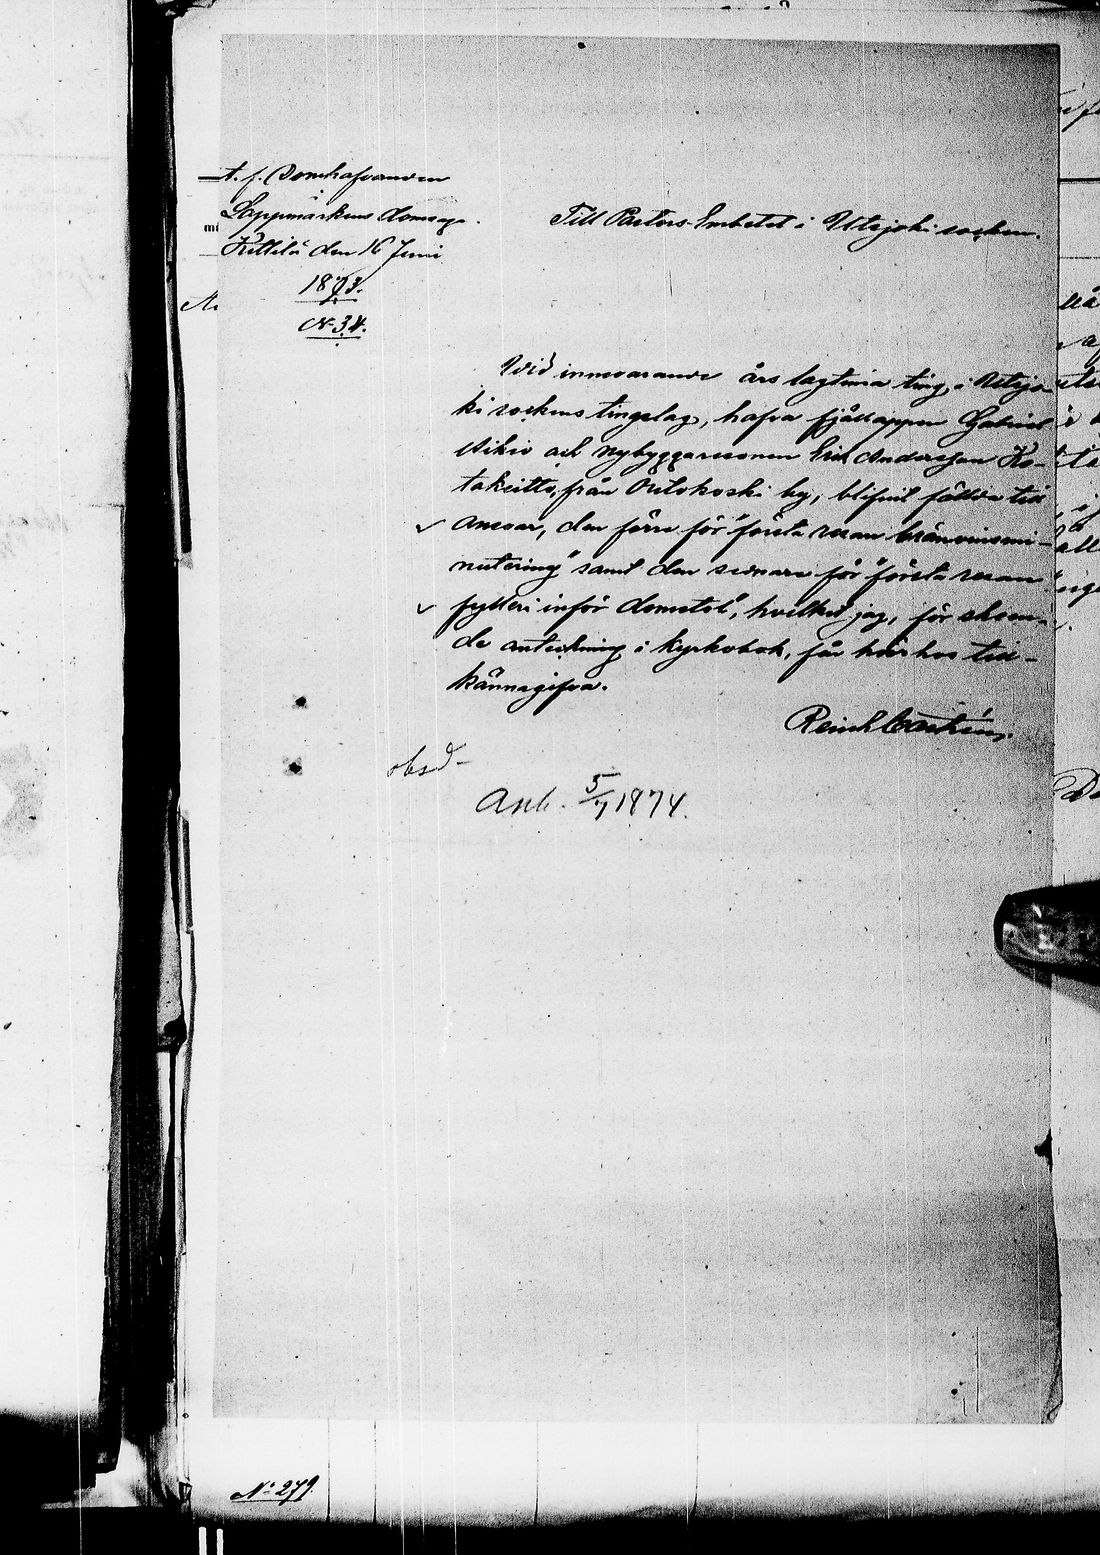 t. f. Domhafvanden
i
Lappmarkens domsaga.
Kittilä den 16 Juni
1873.
N. 34.
Till Pastors-Embetet i Utsjoki socken.
Vid innevarande års lagtima ting i Utsjo-
ki sockens tingslag, hafva fjällappen Gabriel
Aikio och nybyggaresonen Erik Andersson Ko-
takeitto, från Outokoski by, blifvit fällda till
ansvar, den förre för "första resan bränvinsmi-
nutering" samt den sednare för "första resan
fylleri inför domstol", hvilket jag, för skeen-
de anteckning i kyrkobok, får härhos till-
kännagifva.
Reinh
obsd
Ank. 5/7 1874.
No 279.